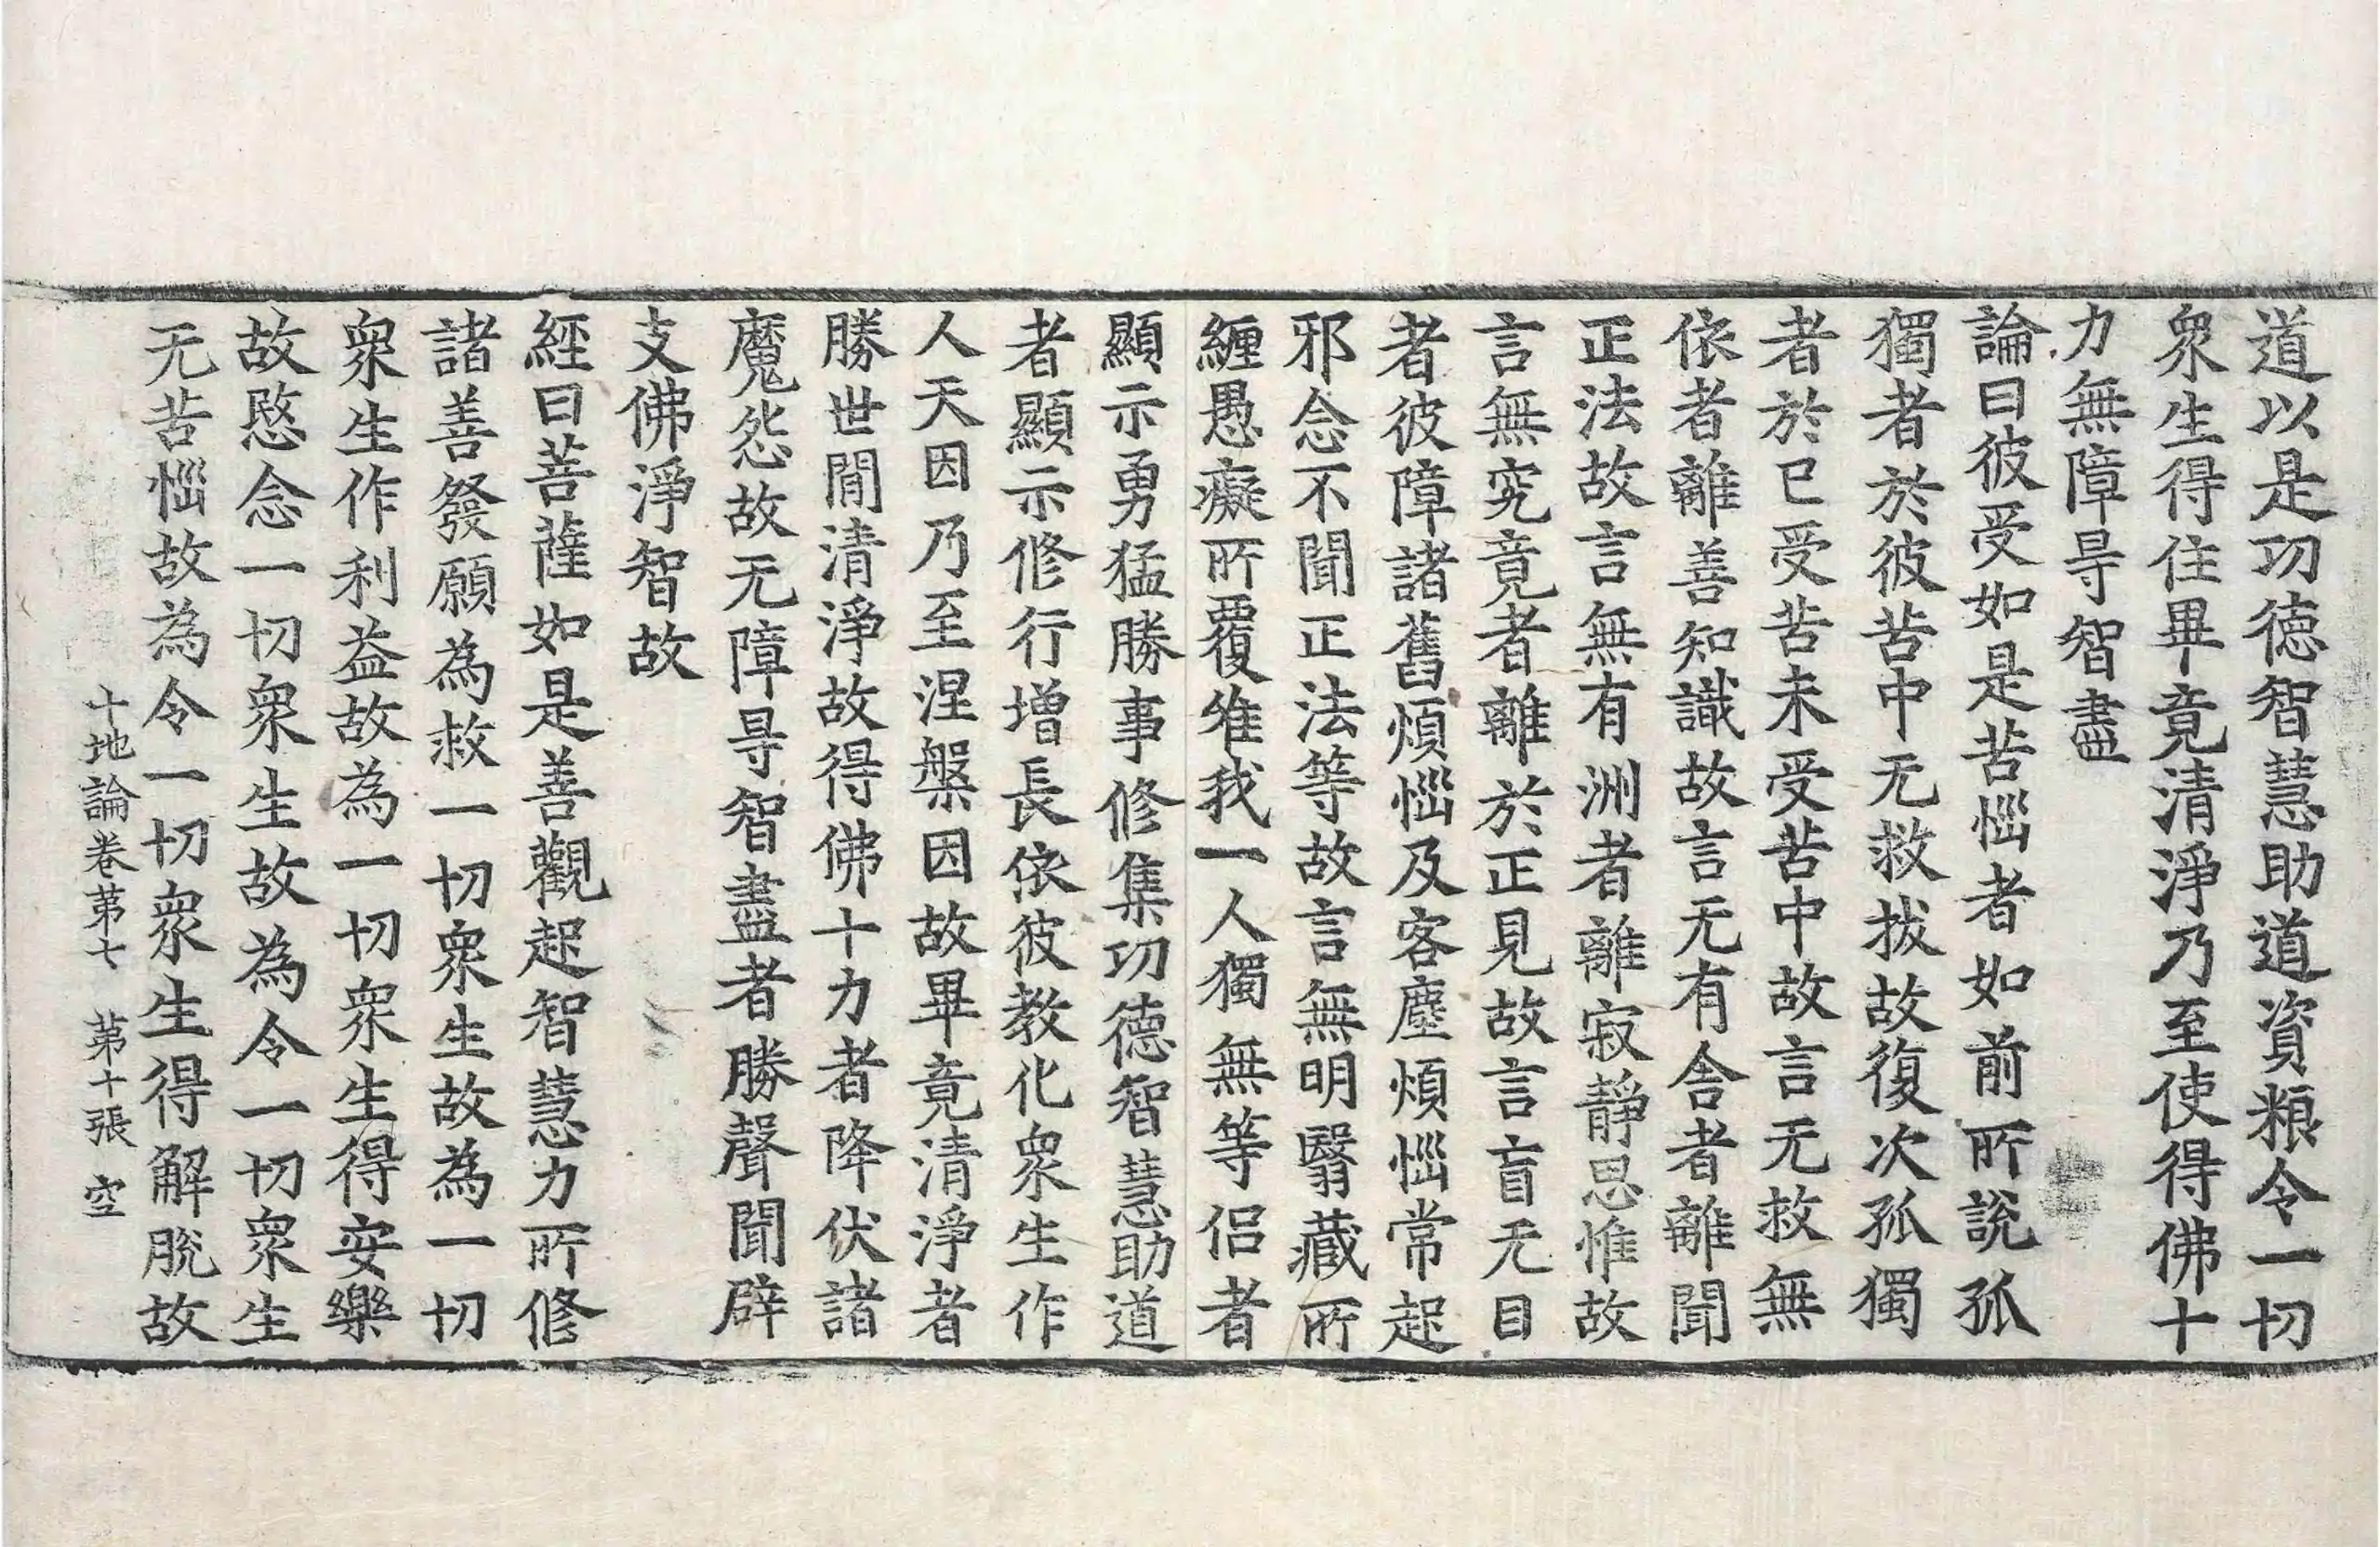 道以是功德智慧助道資粮令一切
衆生得住畢竟清淨乃至使得佛十
力無障㝵智盡
論曰彼受如是苦惱者如前所說孤
獨者於彼苦中无救拔故復次孤獨
者於已受苦未受苦中故言无救無
依者離善知識故言无有舍者離聞
正法故言無有洲者離寂靜思惟故
言無究竟者離於正見故言盲无目
者彼障諸舊煩惱及客塵煩惱常起
邪念不聞正法等故言無明翳藏所
纏愚癡所覆唯我一人獨無等侶者
顯示勇猛勝事修集功德智慧助道
者顯示修行增長依彼教化衆生作
人天因乃至涅槃因故畢竟清淨者
勝世閒清淨故得佛十力者降伏諸
魔怨故无障㝵智盡者勝聲聞辟
支佛淨智故
經曰菩薩如是善觀起智慧力所修
諸善發願為救一切衆生故為一切
衆生作利益故為一切衆生得安樂
故愍念一切衆生故為令一切衆生
无苦惱故為令一切衆生得解脫故
十地論卷苐七 苐十張 空